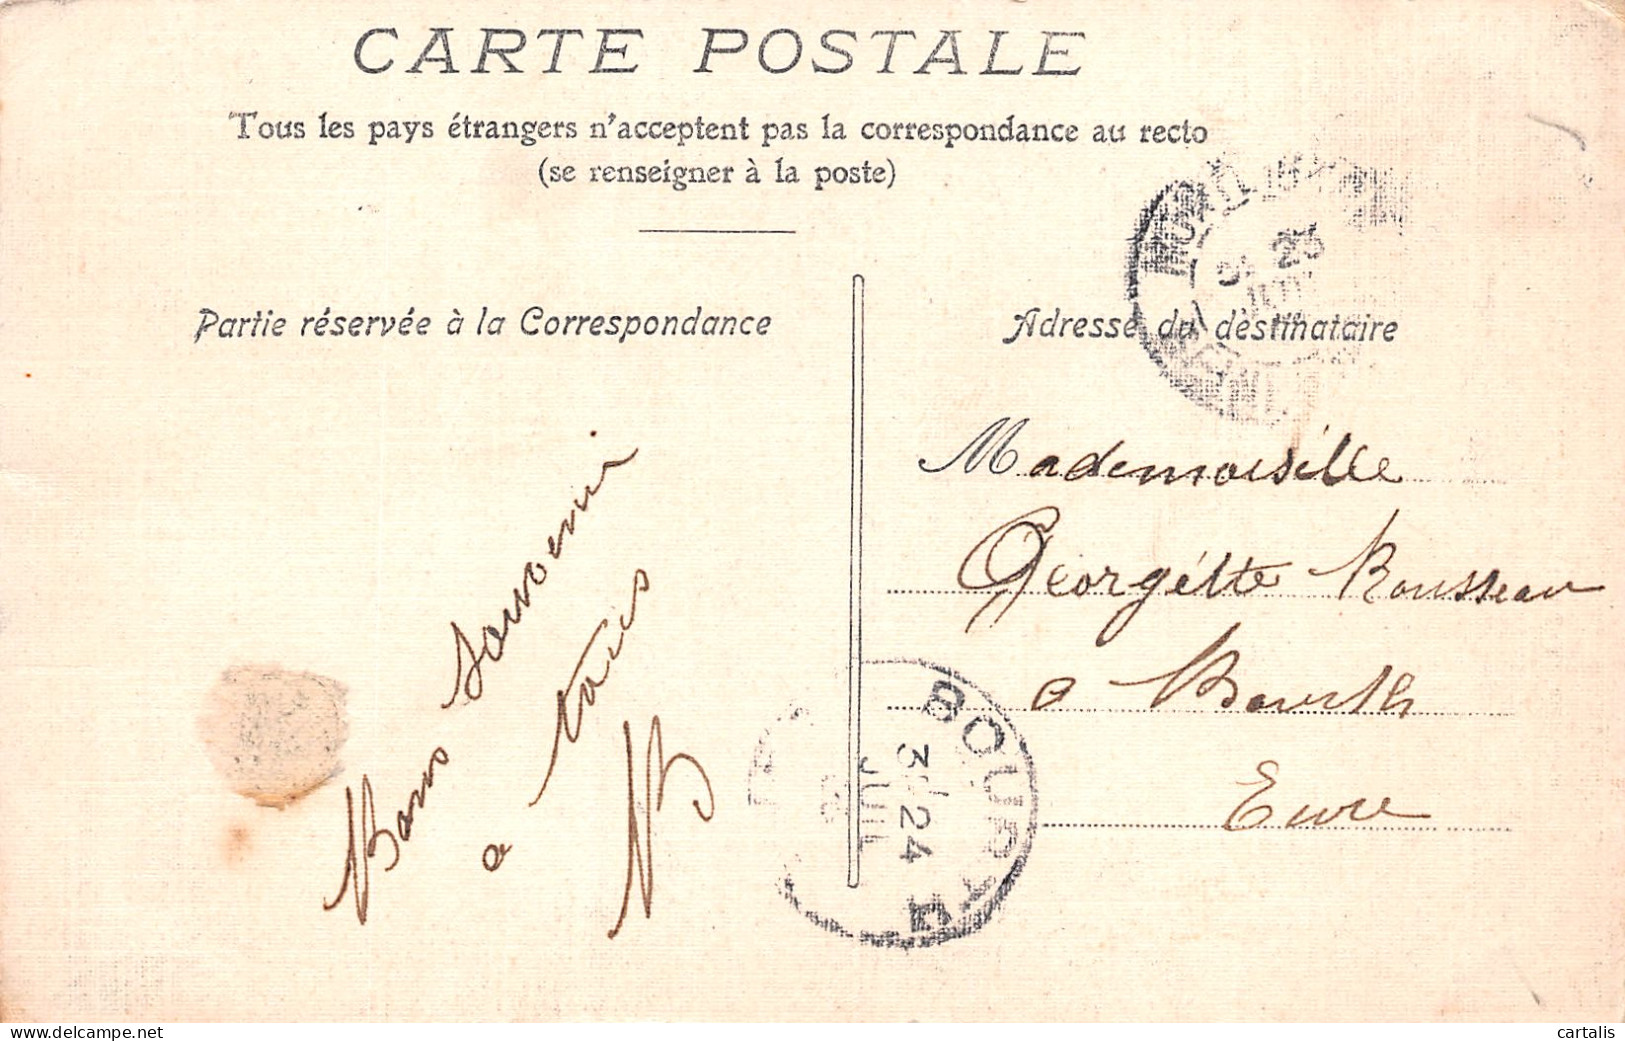 CARTE POSTALE
Tous les pays étrangers n'acceptent pas la correspondance au recto
(se renseigner à la poste)
Partie réservée à la Correspondance
Bons Souvenir
a tous
B
Adresse du destinataire
Mademoiselle
Georgette Rousseau
a Bourth
Eure
25
BOURTH
3 24
JUIL
E
cartalis